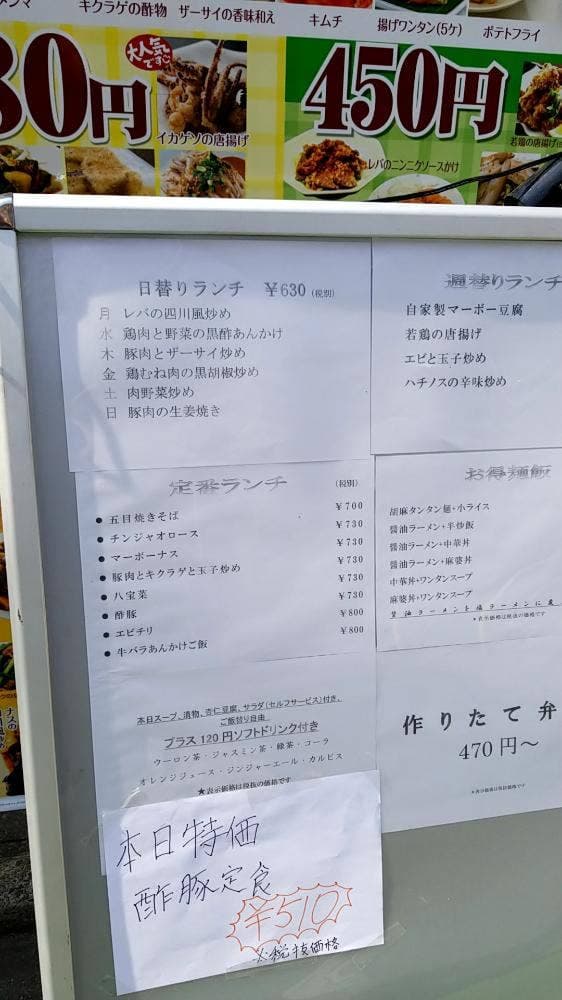 キクラゲの酢物 ザーサイの香味和え キムチ 揚げワンタン(5ケ) ポテトフライ
80円
大人気です
450円
イカゲソの唐揚げ
レバのニンニクソースかけ
若鶏の唐揚げ
日替りランチ ￥630 (税別)
月 レバの四川風炒め
水 鶏肉と野菜の黒酢あんかけ
木 豚肉とザーサイ炒め
金 鶏むね肉の黒胡椒炒め
土 肉野菜炒め
日 豚肉の生姜焼き
週替りランチ
自家製マーボー豆腐
若鶏の唐揚げ
エビと玉子炒め
ハチノスの辛味炒め
定番ランチ (税別)
● 五目焼きそば ￥700
● チンジャオロース ￥730
● マーボーナス ￥730
● 豚肉とキクラゲと玉子炒め ￥730
● 八宝菜 ￥730
● 酢豚 ￥730
● エビチリ ￥800
● 牛バラあんかけご飯 ￥800
本日スープ、漬物、杏仁豆腐、サラダ(セルフサービス)付き、
ご飯替り自由
プラス120円ソフトドリンク付き
ウーロン茶・ジャスミン茶・緑茶・コーラ
オレンジジュース・ジンジャーエール・カルピス
★表示価格は税抜の価格です
お得麺飯
胡麻タンタン麺+小ライス
醤油ラーメン+半炒飯
醤油ラーメン+中華丼
醤油ラーメン+麻婆丼
中華丼+ワンタンスープ
麻婆丼+ワンタンスープ
醤油ラーメンを塩ラーメンに変
*表示価格は税抜の価格です
作りたて弁
470円～
*表示価格は税抜価格です
本日特価
酢豚定食
￥510
※税抜価格